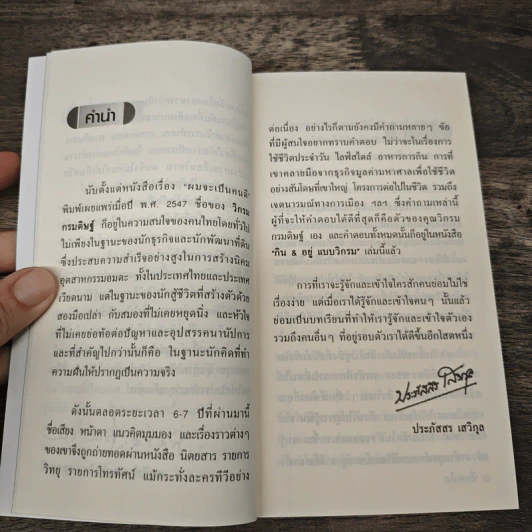 คำนำ
นับตั้งแต่หนังสือเรื่อง "ผมจะเป็นคนดี"
พิมพ์เผยแพร่เมื่อปี พ.ศ. 2547 ชื่อของ วิกรม
กรมดิษฐ์ ก็อยู่ในความสนใจของคนไทยโดยทั่วไป
ไม่เพียงในฐานะของนักธุรกิจและนักพัฒนาที่ดิน
ซึ่งประสบความสำเร็จอย่างสูงในการสร้างนิคม
อุตสาหกรรมอมตะ ทั้งในประเทศไทยและประเทศ
เวียดนาม แต่ในฐานะของนักสู้ชีวิตที่สร้างตัวด้วย
สองมือเปล่า กับสมองที่ไม่เคยหยุดนิ่ง และหัวใจ
ที่ไม่เคยย่อท้อต่อปัญหาและอุปสรรคนานัปการ
และที่สำคัญไปกว่านั้นก็คือ ในฐานะนักคิดที่ทำ
ความฝันให้ปรากฏเป็นความจริง
ดังนั้นตลอดระยะเวลา 6-7 ปีที่ผ่านมานี้
ชื่อเสียง หน้าตา แนวคิดมุมมอง และเรื่องราวต่างๆ
ของเขาจึงถูกถ่ายทอดผ่านหนังสือ นิตยสาร รายการ
วิทยุ รายการโทรทัศน์ แม้กระทั่งละครทีวีอย่าง
ต่อเนื่อง อย่างไรก็ตามยังคงมีคำถามหลายๆ ข้อ
ที่มีผู้สนใจอยากทราบคำตอบ ไม่ว่าจะในเรื่องการ
ใช้ชีวิตประจำวัน ไลฟ์สไตล์ อาหารการกิน การที่
เขาคลายมือจากธุรกิจมูลค่ามหาศาลเพื่อใช้ชีวิต
อย่างสันโดษที่เขาใหญ่ โครงการต่อไปในชีวิต รวมถึง
เจตนารมณ์ทางการเมือง ฯลฯ ซึ่งคำถามเหล่านี้
ผู้ที่จะให้คำตอบได้ดีที่สุดก็คือตัวของคุณวิกรม
กรมดิษฐ์ เอง และคำตอบทั้งหมดนั้นก็อยู่ในหนังสือ
"กิน & อยู่ แบบวิกรม" เล่มนี้แล้ว
การที่เราจะรู้จักและเข้าใจใครสักคนย่อมไม่ใช่
เรื่องง่าย แต่เมื่อเราได้รู้จักและเข้าใจคนๆ นั้นแล้ว
ย่อมเป็นบทเรียนที่ทำให้เรารู้จักและเข้าใจตัวเอง
รวมถึงคนอื่นๆ ที่อยู่รอบตัวเราได้ดีขึ้นอีกโสดหนึ่ง
ประภัสสร เสวิกุล
ประภัสสร เสวิกุล